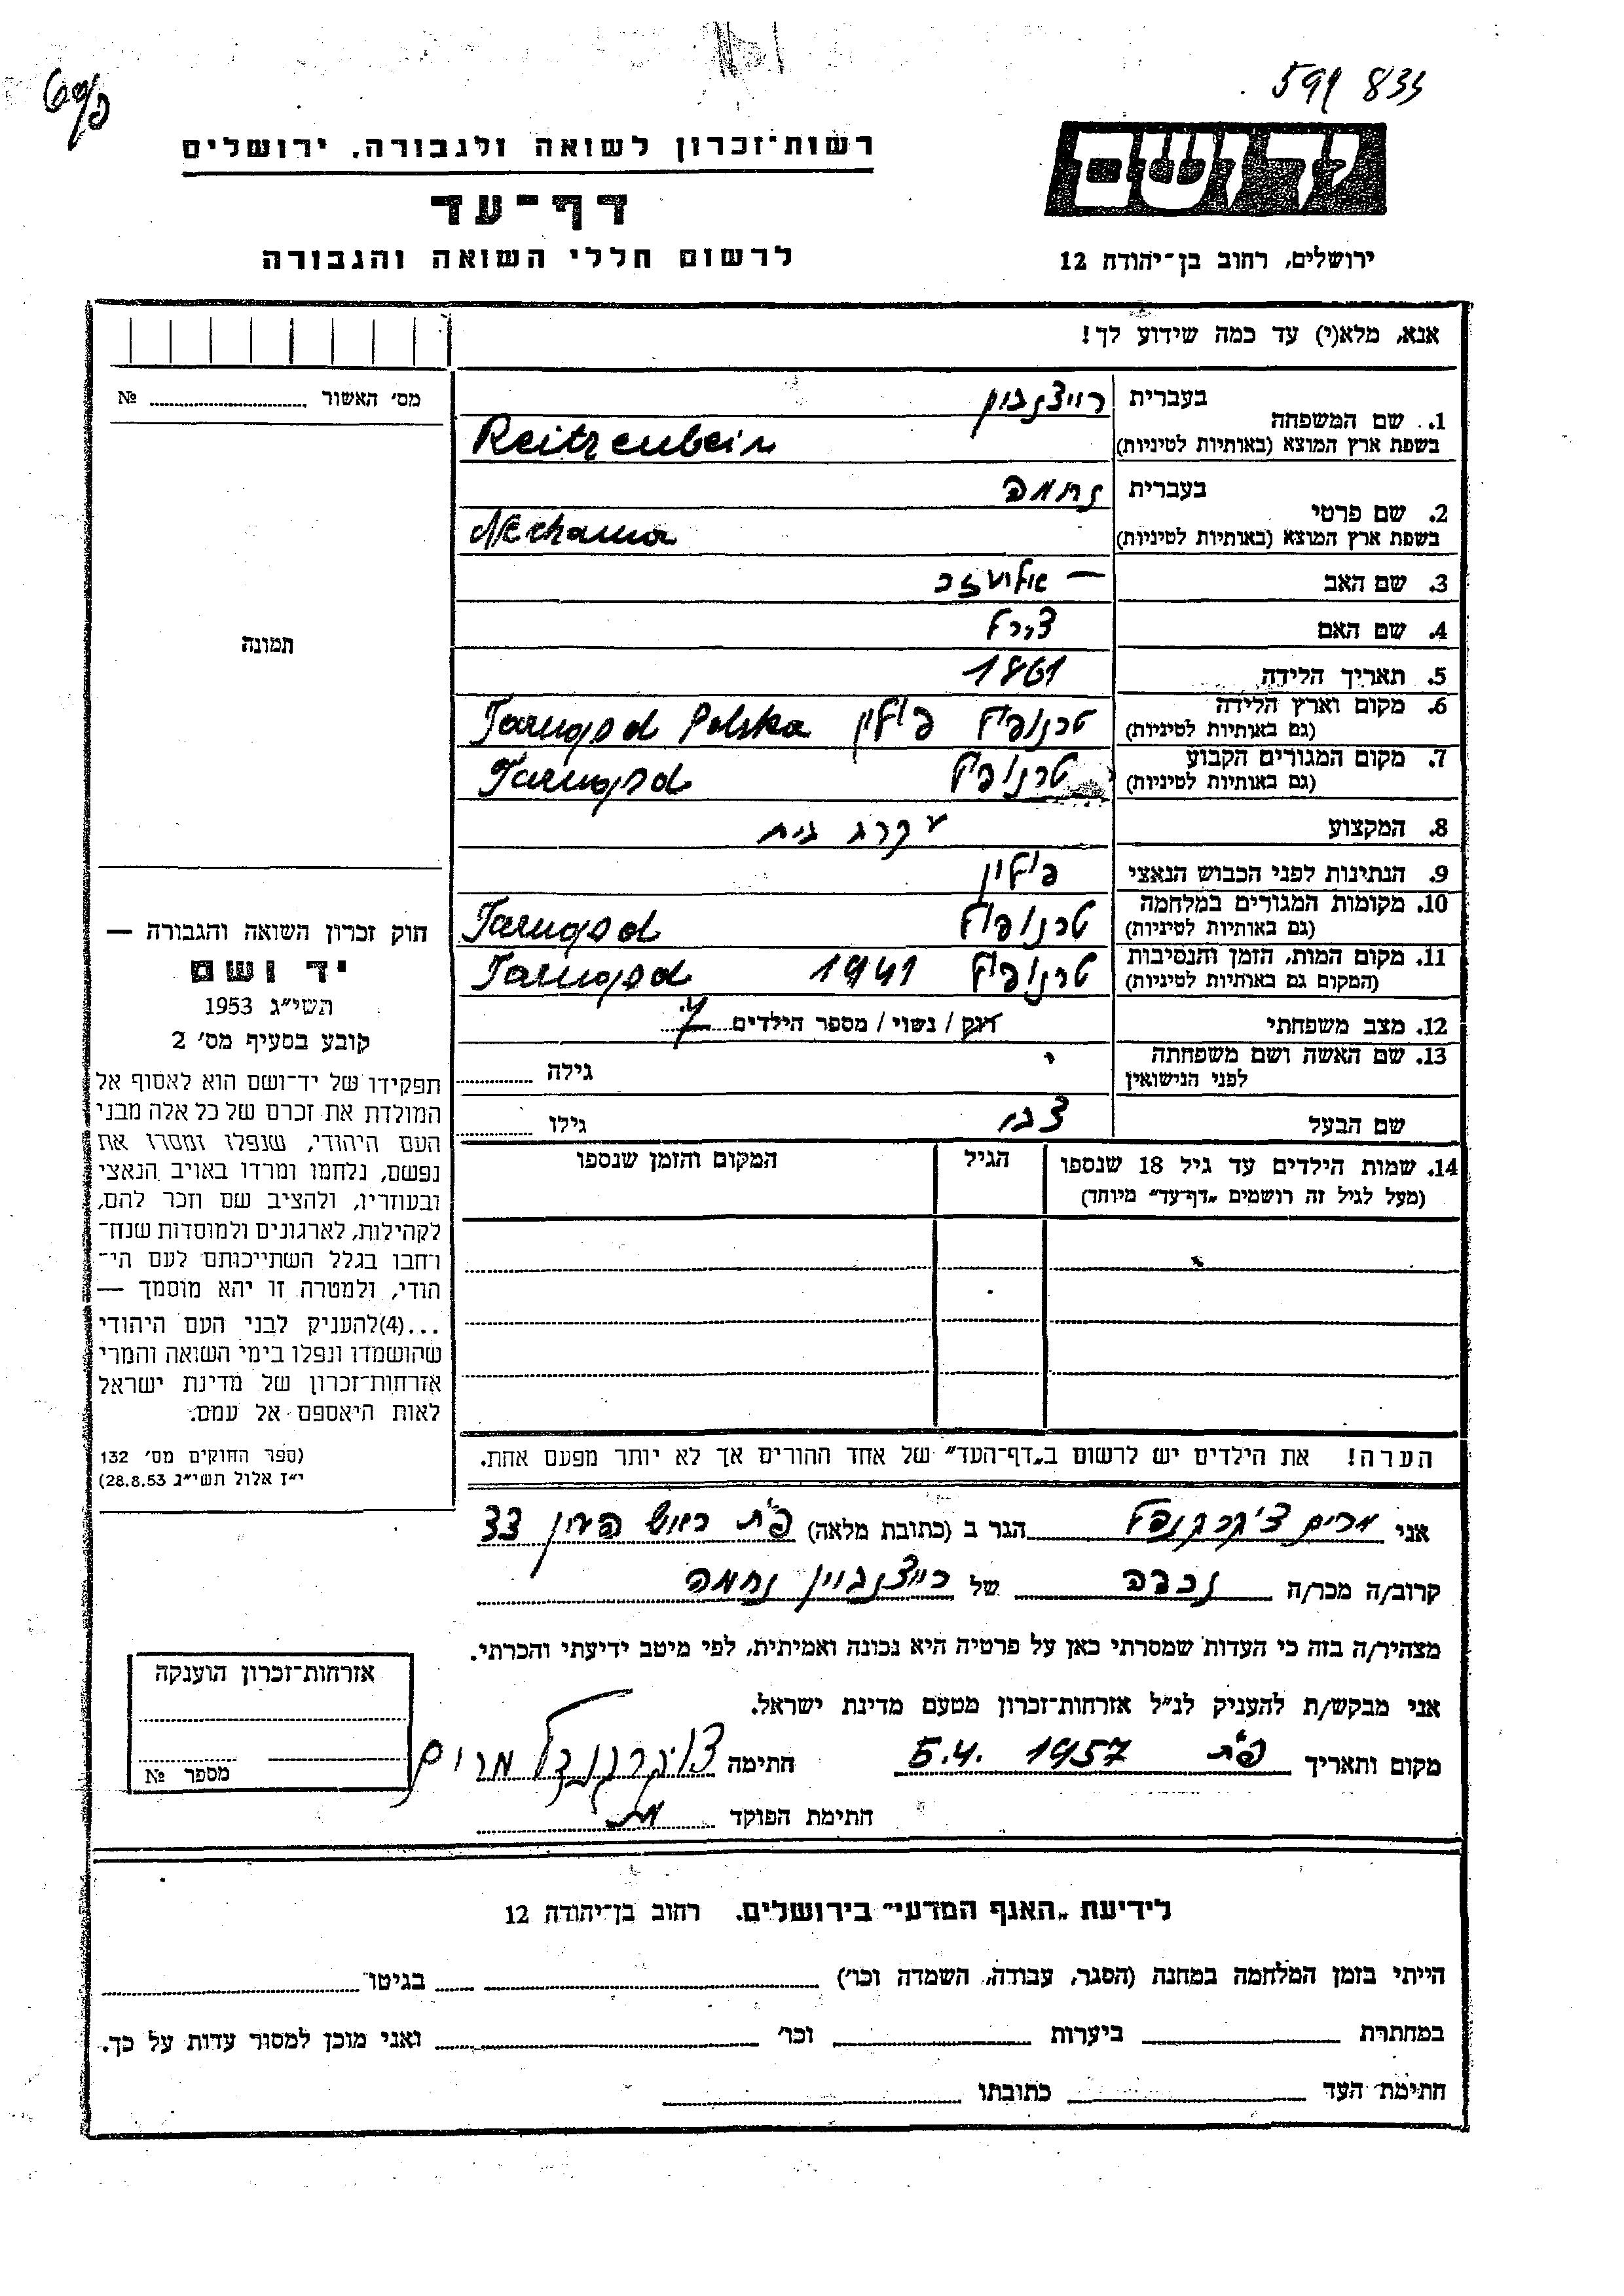 591 833
יד ושם
ירושלים, רחוב בן־יהודה 12
רשות־זכרון לשואה ולגבורה, ירושלים
דף־עד
לרשום חללי השואה והגבורה
אנא, מלא(י) עד כמה שידוע לך!
בעברית
1. שם המשפחה
בשפת ארץ המוצא (באותיות לטיניות) Reitzenbein
בעברית נחמה
2. שם פרטי
בשפת ארץ המוצא (באותיות לטיניות) Nechama
3. שם האב
4. שם האם צירל
5. תאריך הלידה 1861
6. מקום וארץ הלידה
(גם באותיות לטיניות) פולין Tarnogrod Polska
7. מקום המגורים הקבוע
(גם באותיות לטיניות) Tarnogrod
8. המקצוע עקרת בית
9. הנתינות לפני הכבוש הנאצי פולין
10. מקומות המגורים במלחמה
(גם באותיות לטיניות) Tarnogrod
11. מקום המות, הזמן והנסיבות
(המקום גם באותיות לטיניות) 1941 Tarnogrod
12. מצב משפחתי רווק / נשוי / מספר הילדים 7
13. שם האשה ושם משפחתה
לפני הנישואין גילה
שם הבעל צבי גילו
14. שמות הילדים עד גיל 18 שנספו הגיל המקום והזמן שנספו
(מעל לגיל זה רושמים „דף־עד” מיוחד)
הערה! את הילדים יש לרשום ב„דף־העד” של אחד ההורים אך לא יותר מפעם אחת.
מס׳ האשור №
תמונה
חוק זכרון השואה והגבורה —
יד ושם
תשי״ג 1953
קובע בסעיף מס׳ 2
תפקידו של יד־ושם הוא לאסוף אל
המולדת את זכרם של כל אלה מבני
העם היהודי, שנפלו ומסרו את
נפשם, נלחמו ומרדו באויב הנאצי
ובעוזריו, ולהציב שם וזכר להם,
לקהילות, לארגונים ולמוסדות שנח־
רבו בגלל השתייכותם לעם הי־
הודי, ולמטרה זו יהא מוסמך —
...(4) להעניק לבני העם היהודי
שהושמדו ונפלו בימי השואה והמרי
אזרחות־זכרון של מדינת ישראל
לאות היאספם אל עמם.
(ספר החוקים מס׳ 132
י״ז אלול תשי״ג 28.8.53)
אני מרים הגר ב (כתובת מלאה) פ״ת ראש פינה 33
קרוב/ה מכר/ה נכדה של רייצנביין נחמה
מצהיר/ה בזה כי העדות שמסרתי כאן על פרטיה היא נכונה ואמיתית, לפי מיטב ידיעתי והכרתי.
אני מבקש/ת להעניק לנ״ל אזרחות־זכרון מטעם מדינת ישראל.
מקום ותאריך פ״ת 5.4. 1957 חתימה מרים
חתימת הפוקד
אזרחות־זכרון הוענקה
מספר №
לידיעת „האגף המדעי” בירושלים. רחוב בן־יהודה 12
הייתי בזמן המלחמה במחנה (הסגר, עבודה, השמדה וכו׳) בגיטו
במחתרת ביערות וכו׳ ואני מוכן למסור עדות על כך.
חתימת העד כתובתו